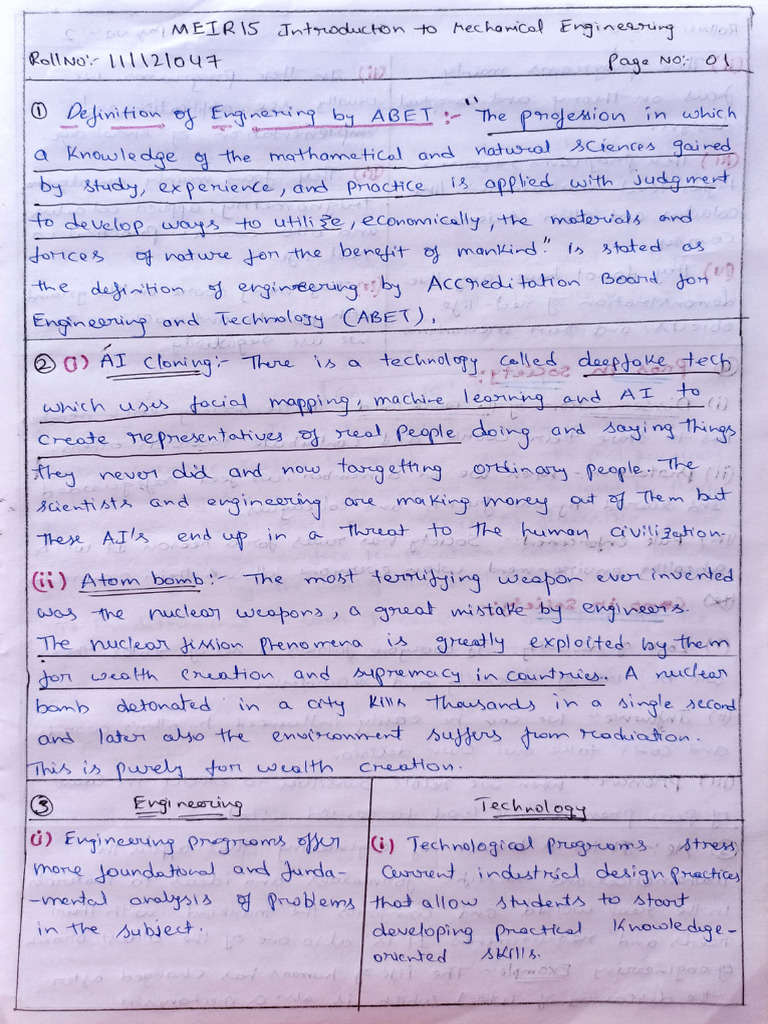 MEIR15 Introduction to Mechanical Engineering
Roll No:- 111121047
Page No:- 01
① Definition of Enginering by ABET :- "The profession in which
a knowledge of the mathametical and natural sciences gained
by study, experience, and practice is applied with judgment
to develop ways to utilize, economically, the materials and
forces of nature for the benefit of mankind" is stated as
the definition of engineering by Accreditation Board for
Engineering and Technology (ABET).
② (i) AI Cloning:- There is a technology called deepfake tech
which uses facial mapping, machine learning and AI to
create representatives of real people doing and saying things
they never did and now targetting ordinary people. The
scientists and engineering are making money out of them but
these AI's end up in a threat to the human civilization.
(ii) Atom bomb:- The most terrifying weapon ever invented
was the nuclear weapons, a great mistake by engineers.
The nuclear fission phenomena is greatly exploited by them
for wealth creation and supremacy in countries. A nuclear
bomb detonated in a city kills thousands in a single second
and later also the environment suffers from radiation.
This is purely for wealth creation.
③ Engineering
(i) Engineering programs offer
more foundational and funda-
-mental analysis of problems
in the subject.
Technology
(i) Technological programs stress
current industrial design practices
that allow students to start
developing practical knowledge-
oriented skills.